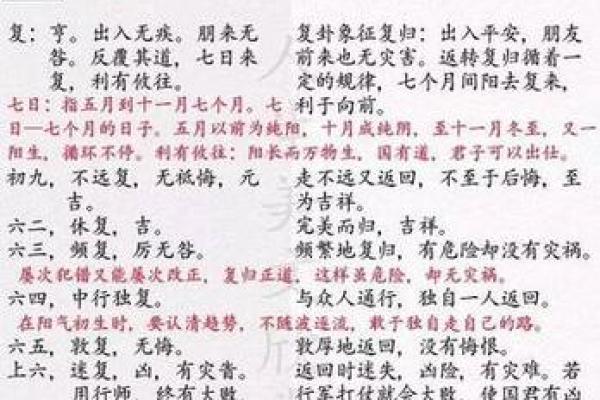 复：亨。出入无疾。朋来无 复卦象征复归：出入平安，朋友
咎。反覆其道，七日来 前来也无灾害。返转复归循着一
复，利有攸往。 定的规律，七个月间阳去复来，
七日：指五月到十一月七个月。七 利于向前。
日—七个月的日子。五月以前为纯阳，十月成纯阴，至十一月冬至，又一
阳生，循环不停。利有攸往：阳长而万物生，国有道，君子可以出仕。
初九，不远复，无祗悔，元 走不远又返回，不至于后悔，至
吉。 为吉祥。
六二，休复，吉。 完美而归，吉祥。
六三，频复，厉无咎。 频繁地复归，有危险却没有灾祸。
屡次犯错又能屡次改正，复归正道，这样虽危险，却无灾祸。
六四，中行独复。 与众人通行，独自一人返回。
在阳气初生时，要认清趋势，不随波逐流，敢于独自走自己的路。
六五，敦复，无悔。 敦厚地返回，没有悔恨。
上六，迷复，凶，有灾眚。 返回时迷失，凶险，有灾难。若
用行师，终有大败， 行军打仗就会大败，使国君有凶